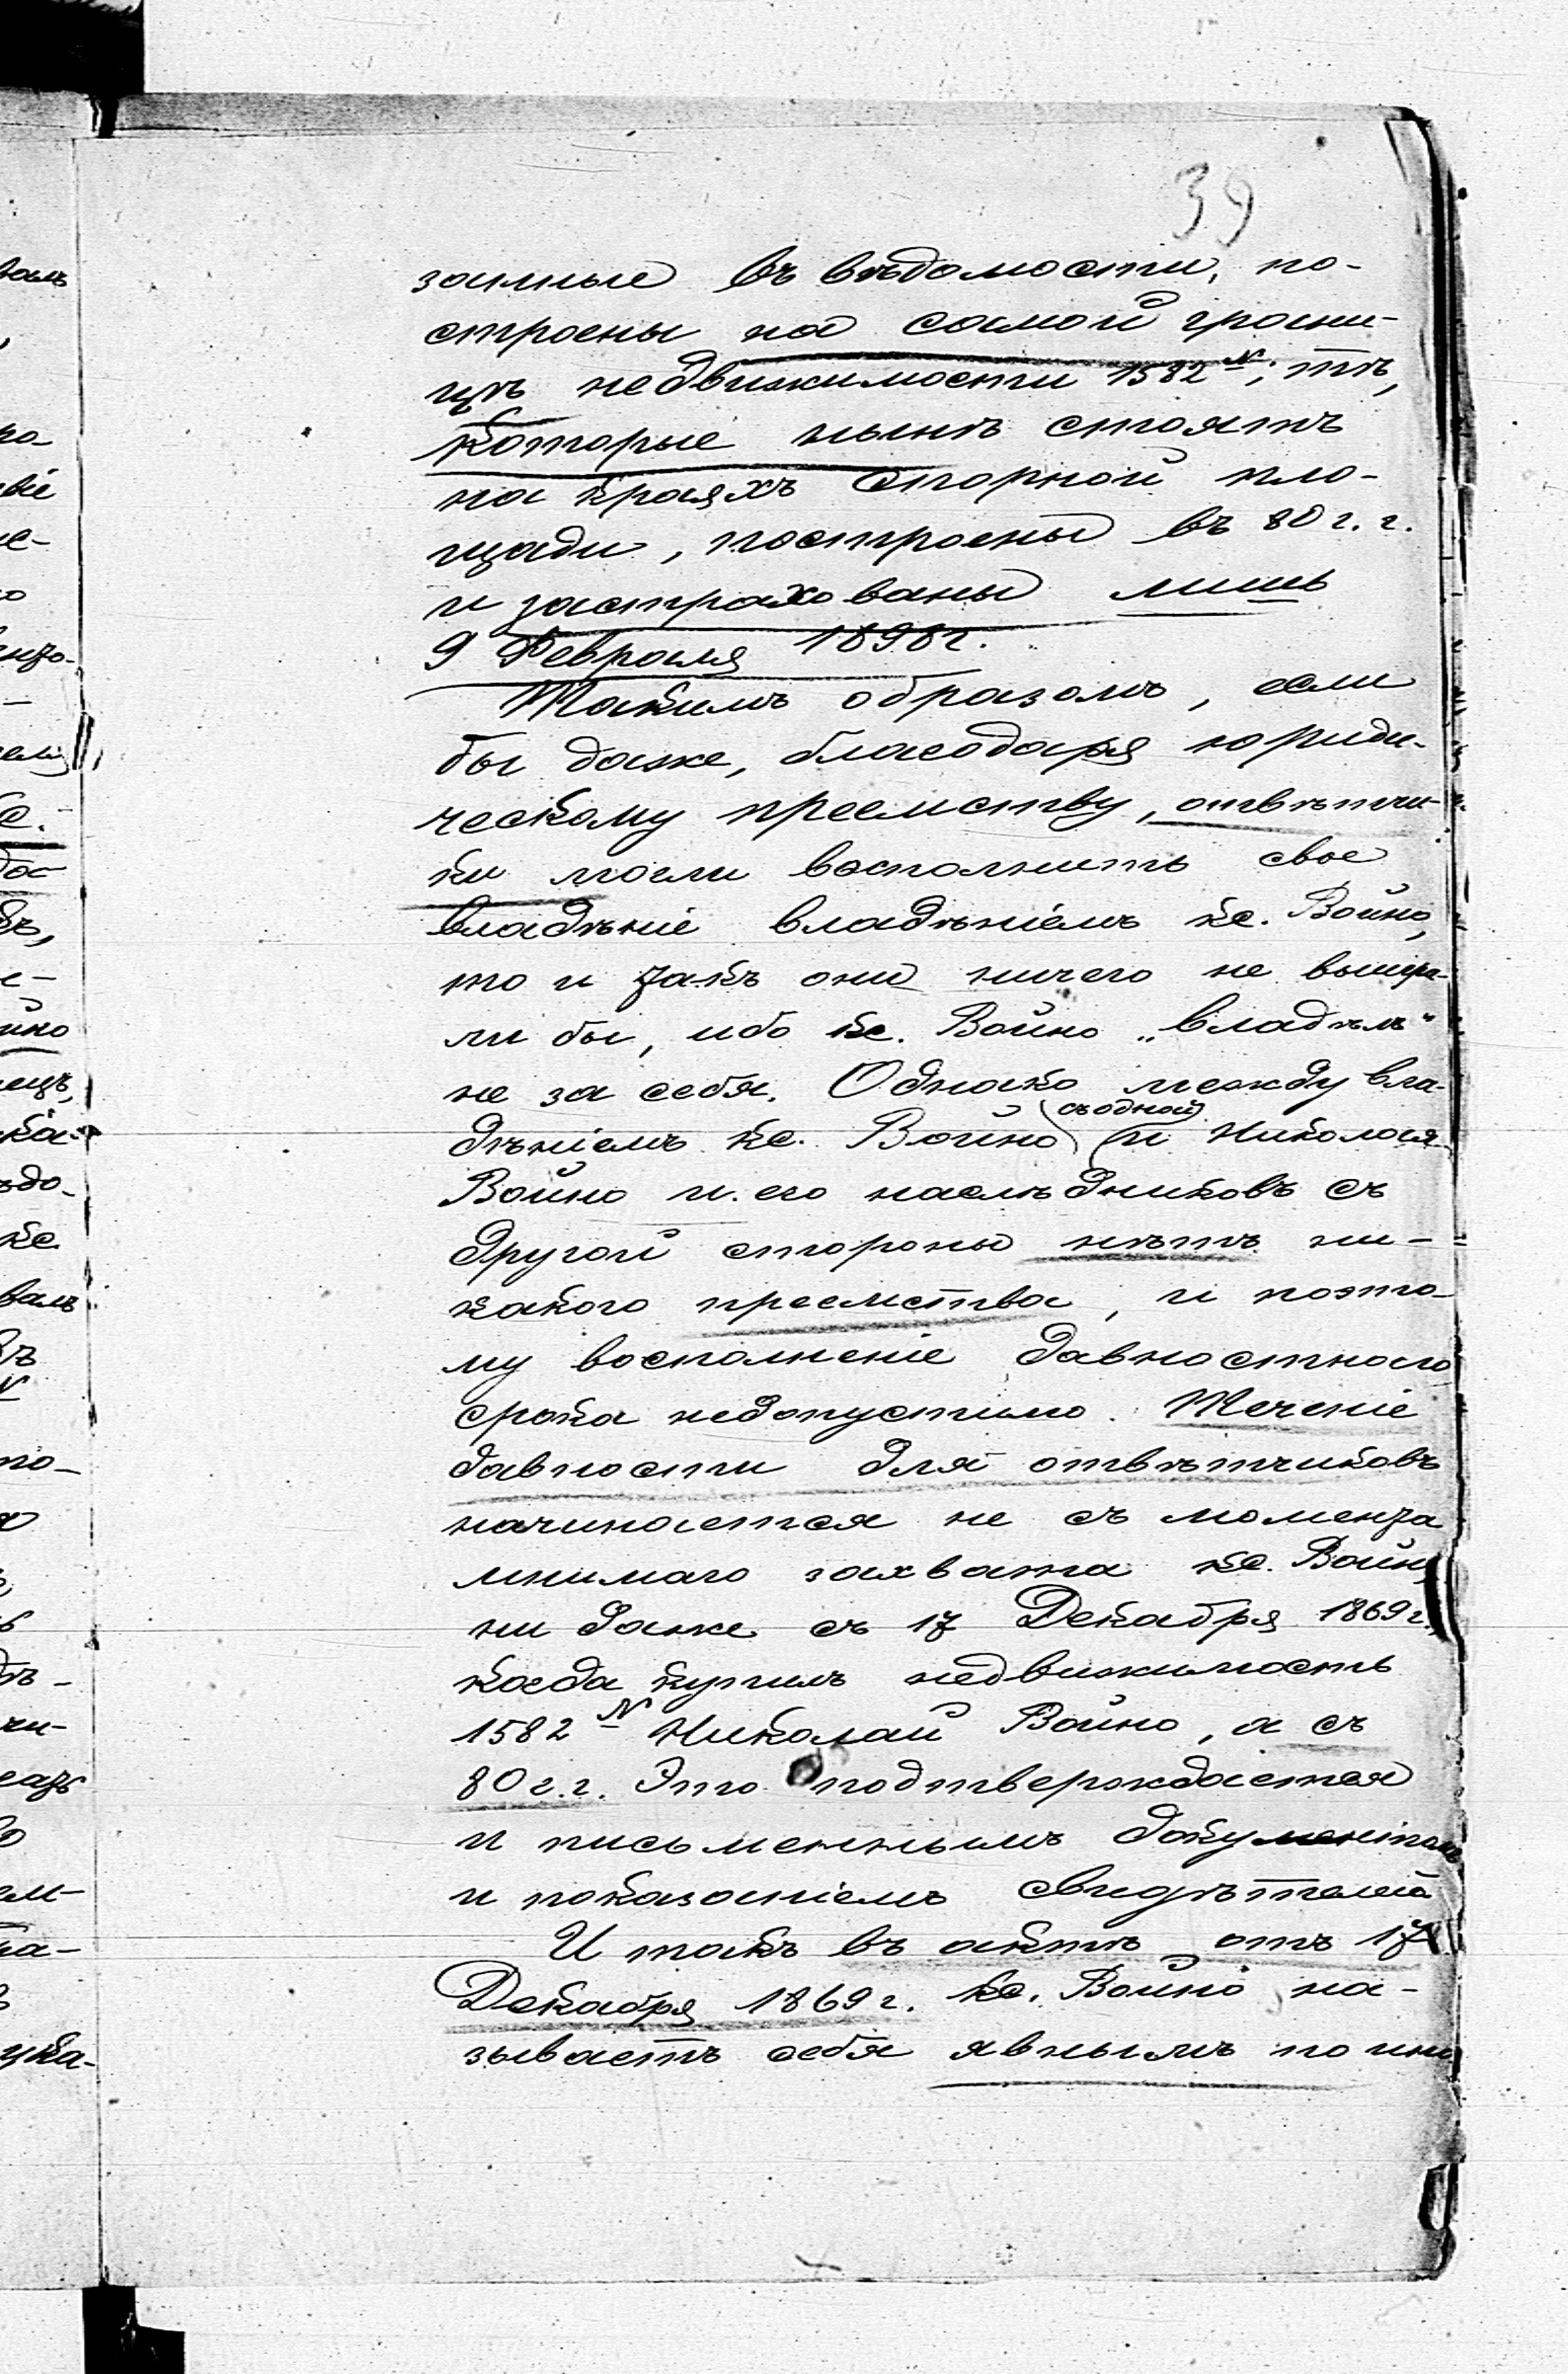 39
занные въ вѣдомости, по-
строены на самой грани-
цѣ недвижимости 1582 N; тѣ,
которые нынѣ стоятъ
на краяхъ спорной пло-
щади, построены въ 80 г.г.
и застрахованы лишь
9 Февраля 1898 г.
Такимъ образомъ, если
бы даже, благодаря юриди-
ческому преемству, отвѣтчи-
ки могли восполнить свое
владѣніе владѣніемъ кс. Войно,
то и такъ они ничего не выигра-
ли бы, ибо кс. Войно „владѣлъ"
не за себя. Однако между вла-
дѣніемъ кс. Войно съ одной и Николая
Войно и его наслѣдниковъ съ
другой стороны нѣтъ ни-
какого преемства, и пото-
му восполненіе давностнаго
срока недопустимо. Теченіе
давности для отвѣтчиковъ
начинается не съ момента
мнимаго захвата кс. Войно,
ни даже съ 17 Декабря 1869 г.,
когда купилъ недвижимость
1582 N Николай Войно, а съ
80 г.г. Это подтверждается
и письменнымъ документомъ
и показаніемъ свидѣтелей
И такъ въ актѣ отъ 17
Декабря 1869 г. кс. Войно на-
зываетъ себя явнымъ по